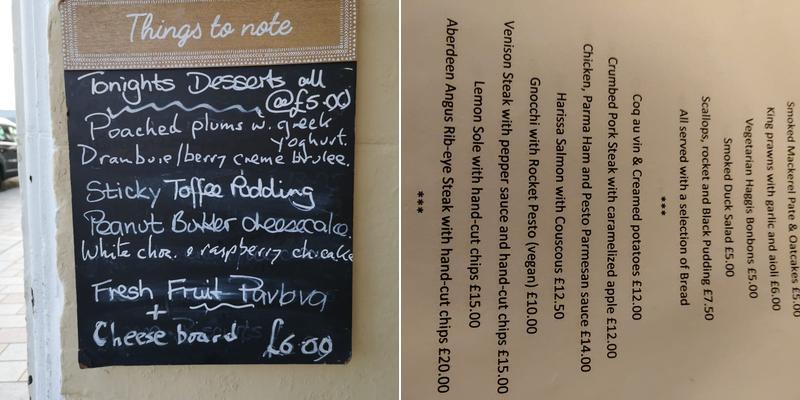 Things to note
Tonights Desserts all
@£5.00
Poached plums w. greek
yoghurt.
Drambuie/berry creme brulee.
Sticky Toffee Pudding
Peanut Butter cheesecake.
White choc. & raspberry ch.cake
Fresh Fruit Pavlova
+
Cheese board £6.00
Smoked Mackerel Pate & Oatcakes £5.00
King prawns with garlic and aioli £6.00
Vegetarian Haggis Bonbons £5.00
Smoked Duck Salad £5.00
Scallops, rocket and Black Pudding £7.50
All served with a selection of Bread
***
Coq au vin & Creamed potatoes £12.00
Crumbed Pork Steak with caramelized apple £12.00
Chicken, Parma Ham and Pesto Parmesan sauce £14.00
Harissa Salmon with Couscous £12.50
Gnocchi with Rocket Pesto (vegan) £10.00
Venison Steak with pepper sauce and hand-cut chips £15.00
Lemon Sole with hand-cut chips £15.00
Aberdeen Angus Rib-eye Steak with hand-cut chips £20.00
***